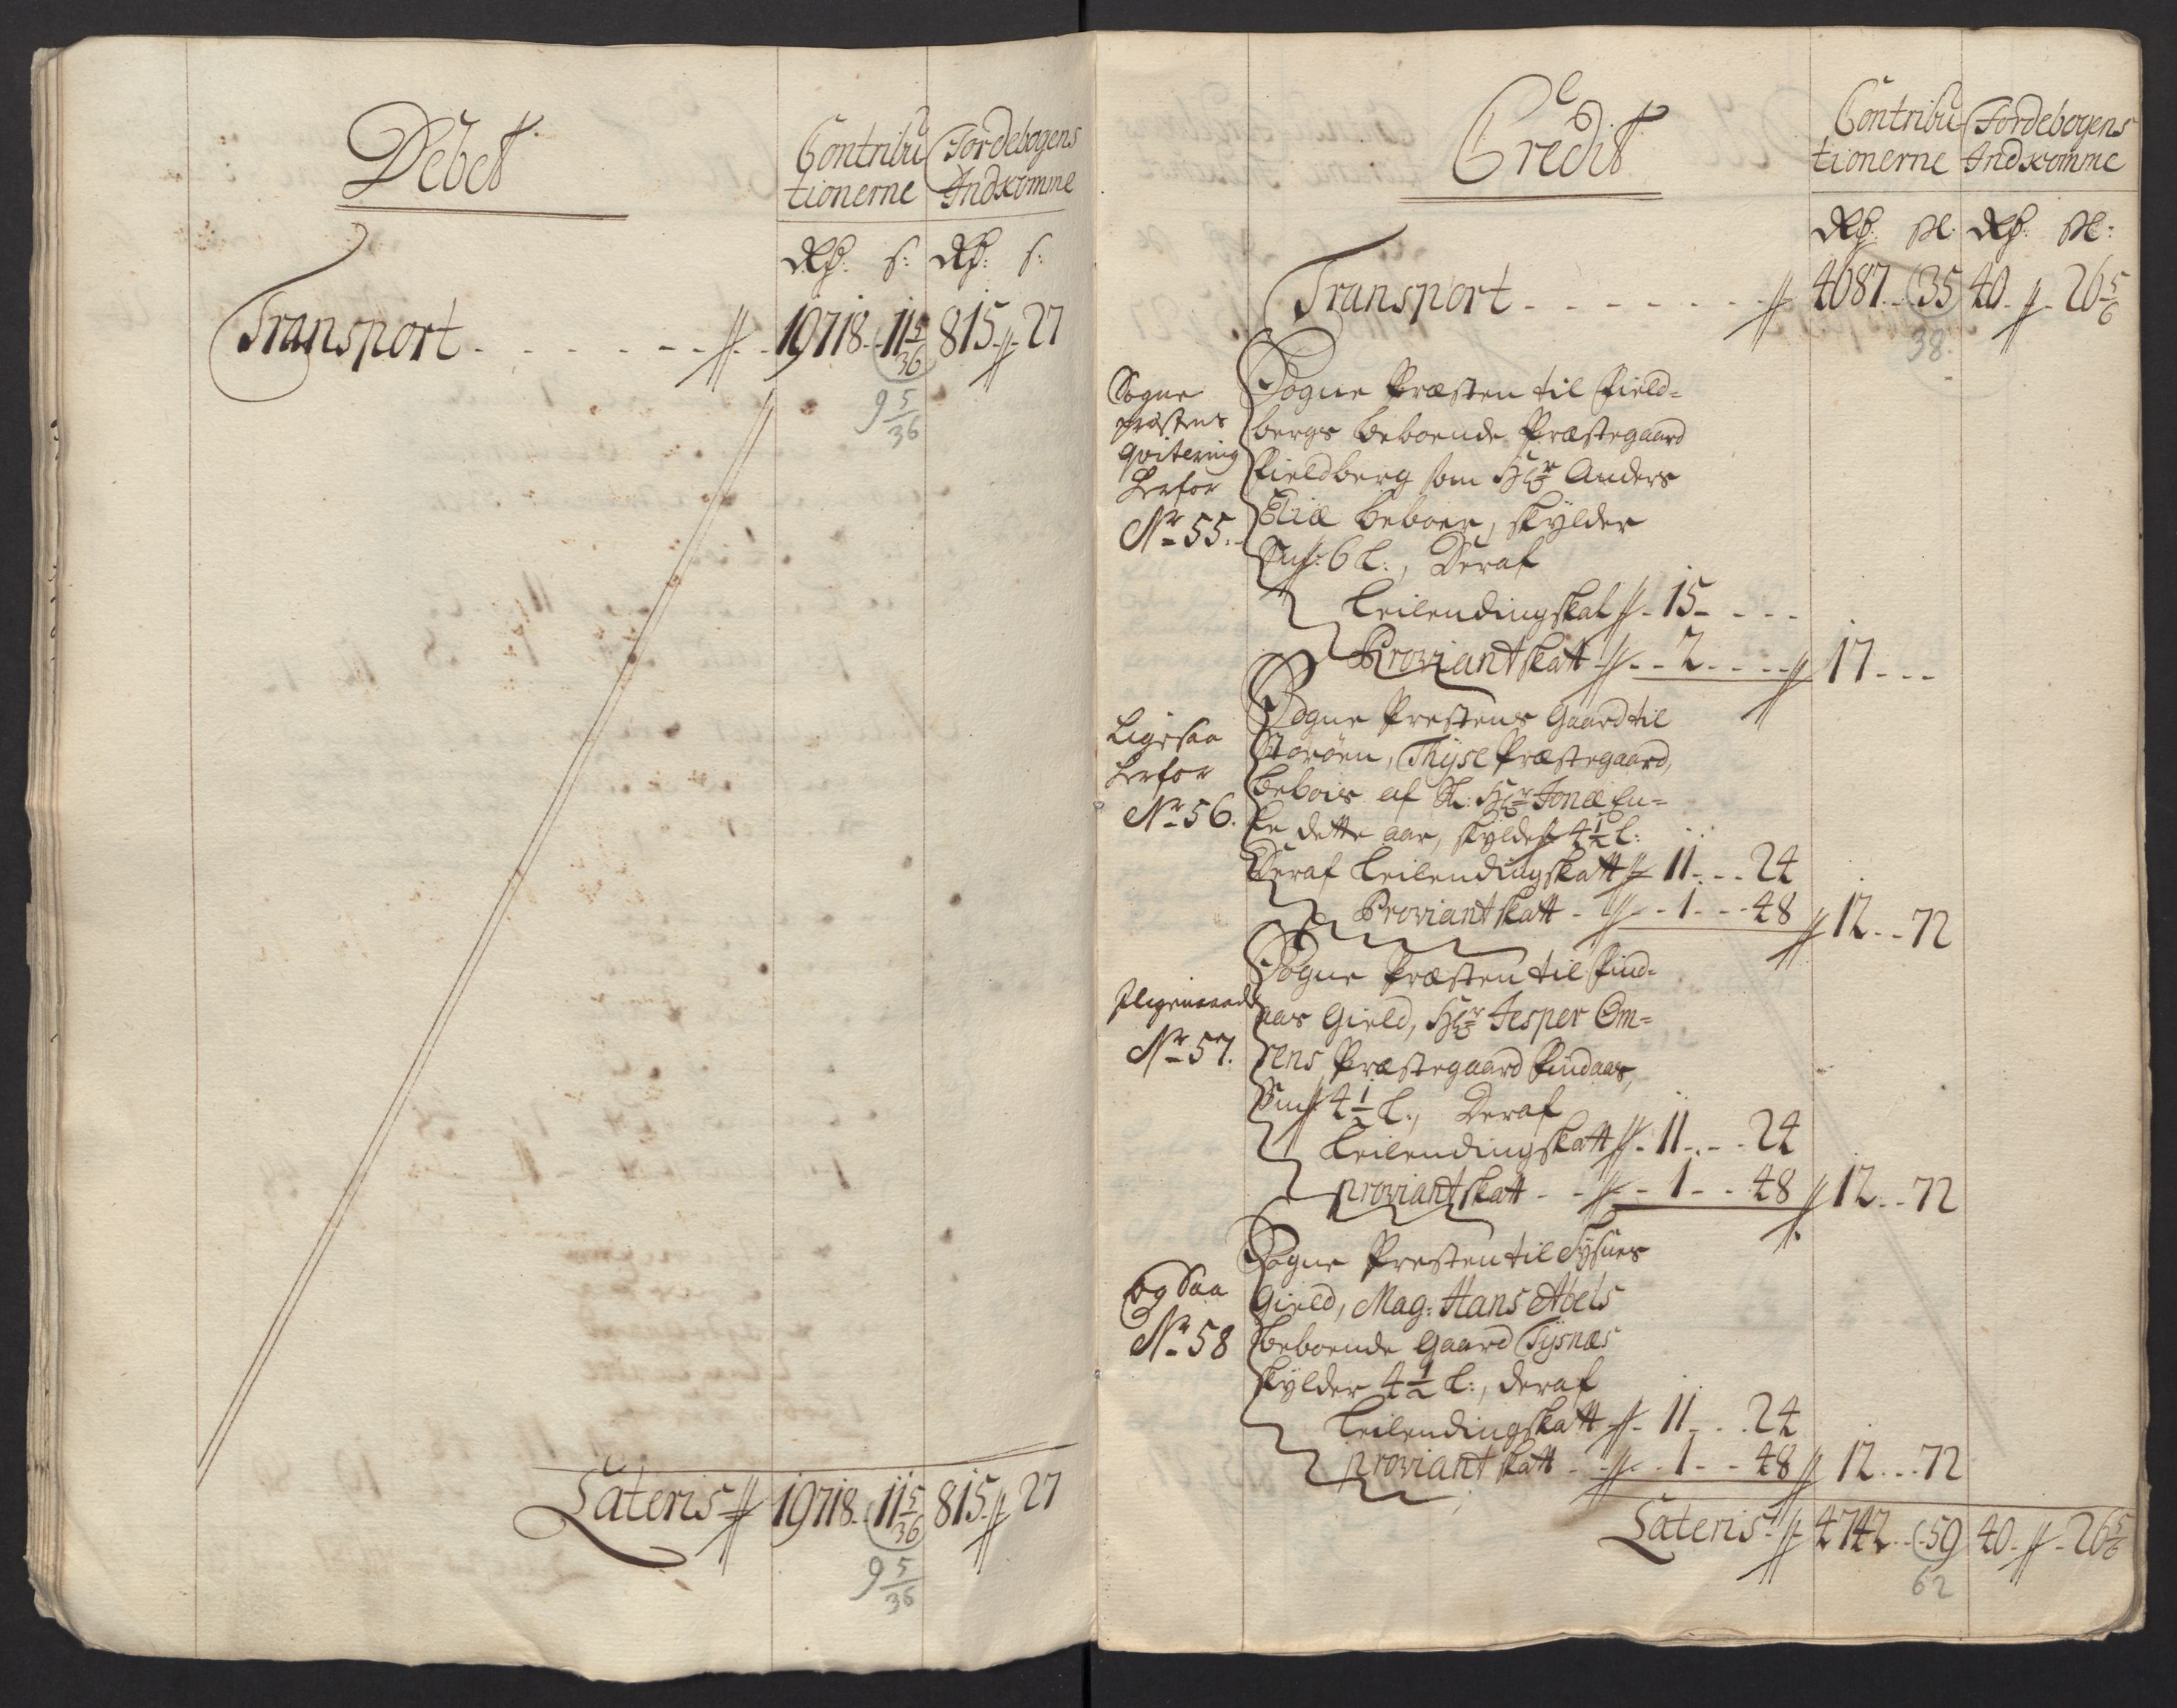 Debet
Contribu
tionerne
Jordebogens
Indkomme
Rd: s: Rd: s:
Transport - - - - - - 19718 - 11 5/36 815 - 27
9 5/36
Lateris 19718 - 11 5/36 815 - 27
9 5/36
Credit
Contribu
tionerne
Jordebogens
Indkomme
Rd: sk: Rd: sk:
Transport - - - - - - - 4687 - 35 40 - 26 5/6
38
Sogne
præstens
Qvitering
herfor
Nr 55.
Sogne Præsten til Field-
bergs beboende Præstegaard
Fieldberg som Hr Anders
Eliæ beboer, skylder
6 L:, Deraf
Leilendingskat - 15 - - -
Proviantskatt - - 2 - - - - 17 - - -
Ligesaa
herfor
Nr 56.
Sogne Prestens Gaard til
Storøen, Thyse Præstegaard,
bebois af Sl: Hr Jonæ En-
ke dette aar, skylder 4 1/2 L:
Deraf Leilendingskatt - 11 - - - 24
Proviantskatt - - 1 - - - 48 12 - - 72
Nr 57.
Sogne Præsten til Find-
aas Gield, Hr Jesper Om-
sens Præstegaard Findaas,
4 1/2 L:, Deraf
Leilendingskatt - 11 - - - 24
proviantskatt - - - 1 - - 48 12 - - 72
og Saa
Nr 58
Sogne Presten til Tysnes
Gield, Mag: Hans Abels
beboende Gaard Tysnæs
skylder 4 1/2 L:, deraf
Leilendingskatt - 11 - - 24
proviantskatt - - 1 - - 48 12 - - - 72
Lateris - 4742 - - 59 40 - 26 5/6
62